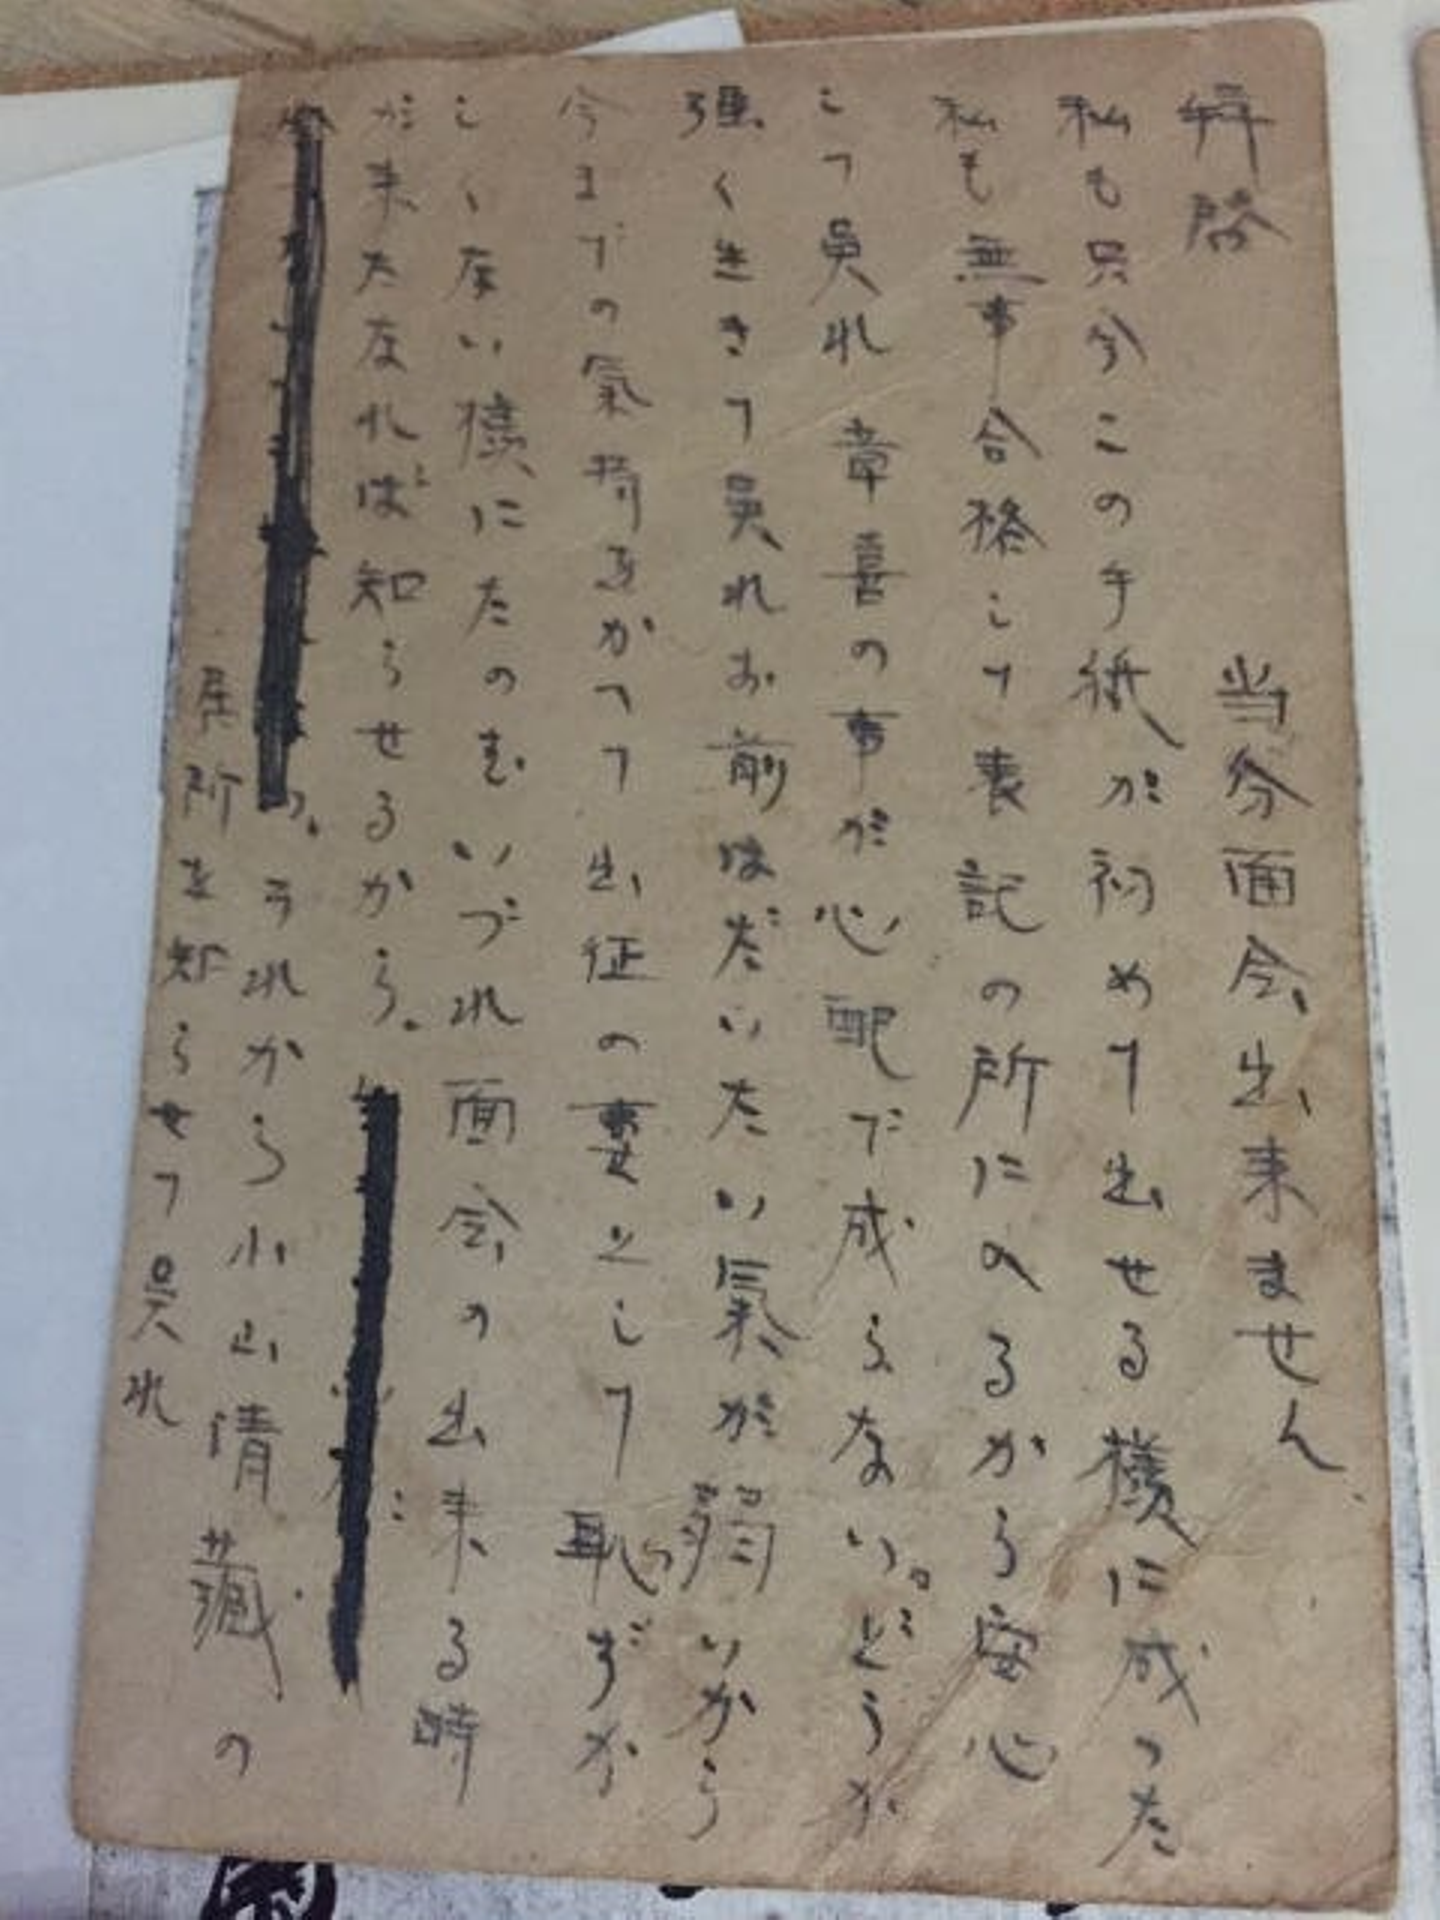 拝啓
当分面会出来ません
私も只今この手紙が初めて出せる様に成った
私も無事合格して表記の所にのるから安心
して呉れ 章喜の事が心配で成らない。どうか
強く生きて呉れお前はだいたい氣が弱いから
今までの氣持をかてて出征の妻として恥ずか
しくない様にたのむ いづれ面会の出来る時
が来たなれば知らせるから。
それから小山清蔵の
居所を知らせて呉れ